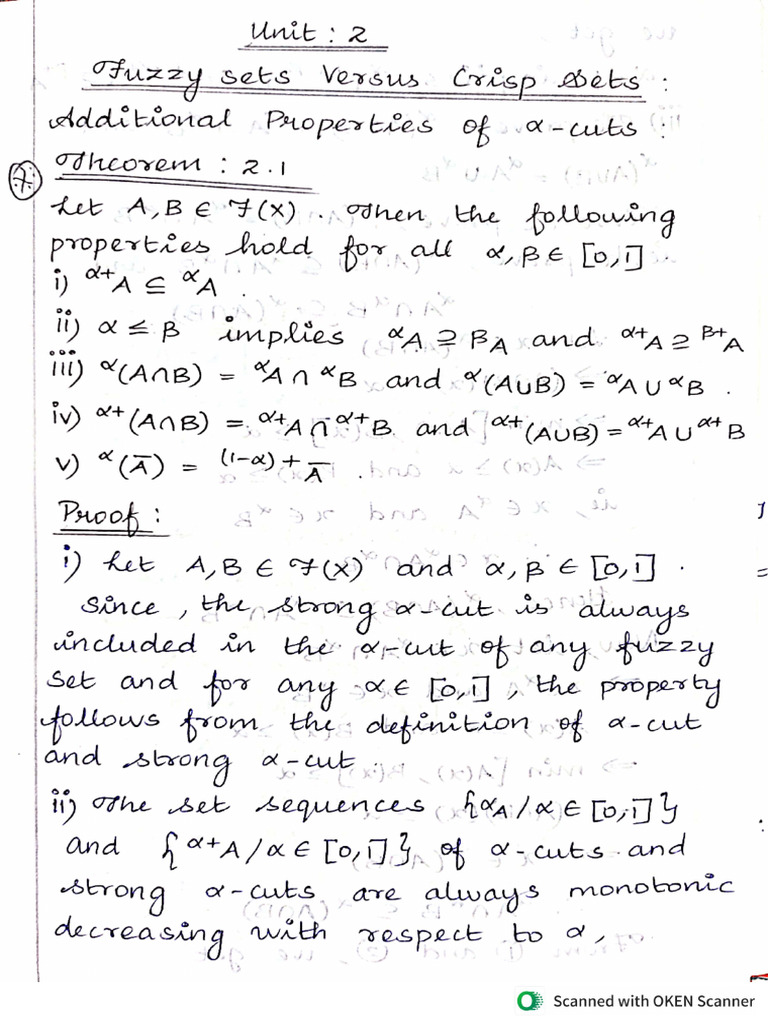 Unit : 2
Fuzzy sets Versus Crisp Sets :
Additional Properties of α-cuts :
7.
Theorem : 2.1
Let A, B ∈ 𝓕(X). Then the following
properties hold for all α, β ∈ [0,1].
i) ᵅ⁺A ⊆ ᵅA .
ii) α ≤ β implies ᵅA ⊇ ᵝA and ᵅ⁺A ⊇ ᵝ⁺A
iii) ᵅ(A∩B) = ᵅA ∩ ᵅB and ᵅ(A∪B) = ᵅA ∪ ᵅB .
iv) ᵅ⁺(A∩B) = ᵅ⁺A ∩ ᵅ⁺B and ᵅ⁺(A∪B) = ᵅ⁺A ∪ ᵅ⁺B
v) ᵅ(A̅) = ⁽¹⁻ᵅ⁾⁺A̅ .
Proof :
i) Let A, B ∈ 𝓕(X) and α, β ∈ [0,1] .
Since, the strong α-cut is always
included in the α-cut of any fuzzy
set and for any α ∈ [0,1], the property
follows from the definition of α-cut
and strong α-cut.
ii) The set sequences {ᵅA / α ∈ [0,1]}
and {ᵅ⁺A / α ∈ [0,1]}, of α-cuts and
strong α-cuts are always monotonic
decreasing with respect to α,
Scanned with OKEN Scanner